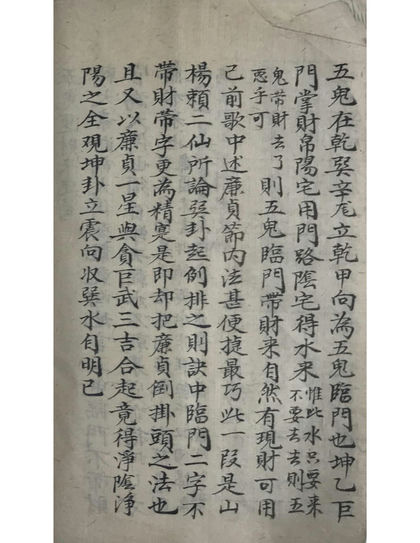 五鬼在乾巽辛尨立乾甲向為五鬼臨門也坤乙巨
門掌財帛陽宅用門路陰宅得水来惟此水只要来
不要去去則五
鬼带財去了
惡乎可
則五鬼臨門带財来自然有現財可用
己前歌中述廉貞節内法甚便捷最巧此一段是山
楊賴二仙所論巽卦起例排之則訣中臨門二字不
带財带字更為精寔是即却把廉貞倒掛頭之法也
且又以廉貞一星與貪巨武三吉合起竟得淨陰淨
陽之全观坤卦立震向収巽水自明已